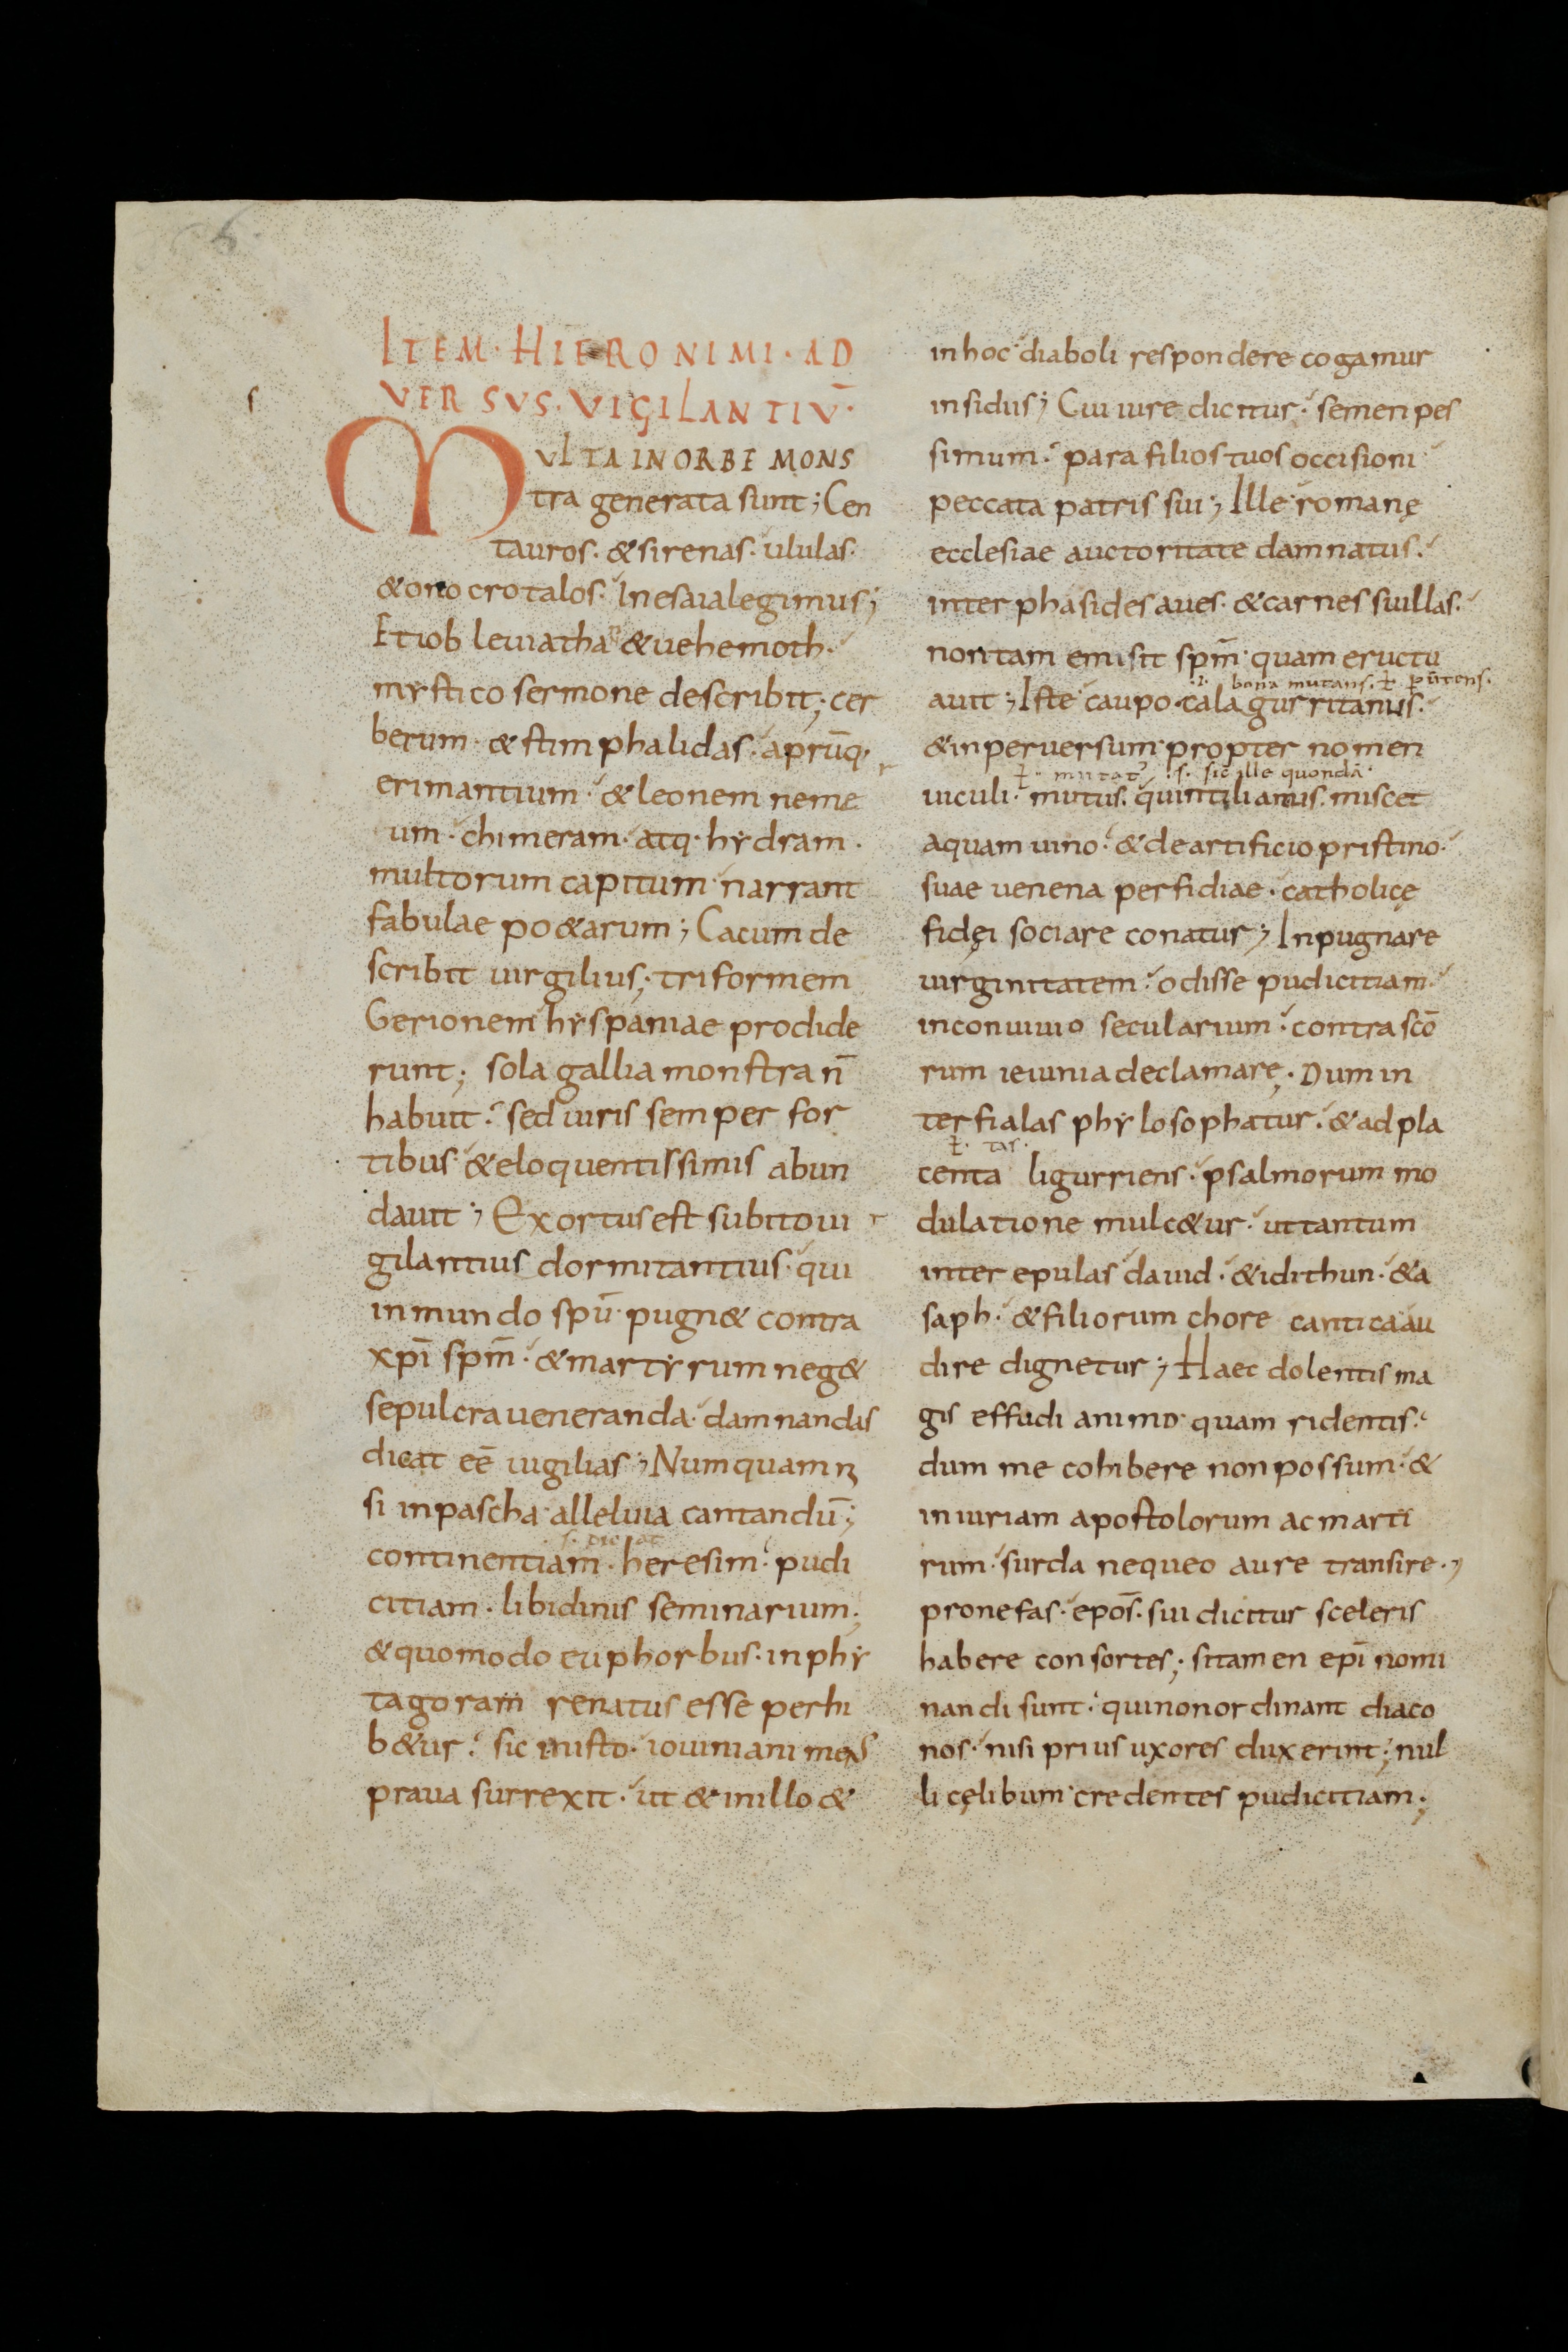 ITEM · HIERONIMI · AD
VERSVS · VIGILANTIV̄ ·
MVLTA IN ORBE MONS
tra generata sunt ; Cen
tauros · & sirenas · ululas ·
& onocrotalos · In esaia legimus ;
Et iob leuiathan & uehemoth ·
mystico sermone describit ; cer
berum · & stimphalidas · aprūq·
erimantium · & leonem neme
um · chimeram · atq· hydram ·
multorum capitum · narrant
fabulae po&arum ; Cacum de
scribit uirgilius ; triformem
Gerionem hyspaniae prodide
runt ; sola gallia monstra n̄
habuit · sed uiris semper for
tibus & eloquentissimis abun
dauit ; Exortus est subito ui
gilantius dormitantius · qui
inmundo spū · pugn& contra
xpī spm̄ · & martyrum neg&
sepulcra ueneranda · damnandas
dicat eē uigilias ; Numquam n
si in pascha · alleluia cantandū ;
s· dicat
continentiam · heresim · pudi
citiam · libidinis seminarium ;
& quomodo euphorbus · in phy
tagoram renatus esse perhi
b&ur · sic in isto · iouiniani mens
praua surrexit · ut & in illo &
in hoc diaboli respondere cogamur
insidiis ; Cui iure dicitur · semen pes
simum · para filios tuos occisioni
peccata patris sui ; Ille romanę
ecclesiae auctoritate damnatus ·
inter phasides aues · & carnes suillas ·
non tam emisit spm̄ · quam eructu
·i· bona mutans · ł pūtens ·
auit ; Iste caupo · calagurritanus ·
& in peruersum · propter nomen
ł · mutat · s· sic ille quondā ·
uiculi · mutus · quintilianus · miscet
aquam uino · & de artificio pristino ·
suae uenena perfidiae · catholicę
fidęi sociare conatur ; Inpugnare
uirginitatem · odisse pudicitiam ·
in conuiuio secularium · contra scō
rum ieiunia declamare ; Dum in
ter fialas phylosophatur · & ad pla
ł · tas ·
centa ligurriens · psalmorum mo
dulatione mulc&ur · ut tantum
inter epulas dauid · & idithun · & a
saph · & filiorum chore cantica au
dire dignetur ; Haec dolentis ma
gis effudi animo quam ridentis ·
dum me cohibere non possum · &
iniuriam apostolorum ac marti
rum · surda nequeo aure transire ·
pro nefas · epōs · sui dicitur sceleris
habere consortes ; si tamen epī nomi
nandi sunt · qui non ordinant diaco
nos · nisi prius uxores duxerint ; nul
li cęlibum credentes pudicitiam ;